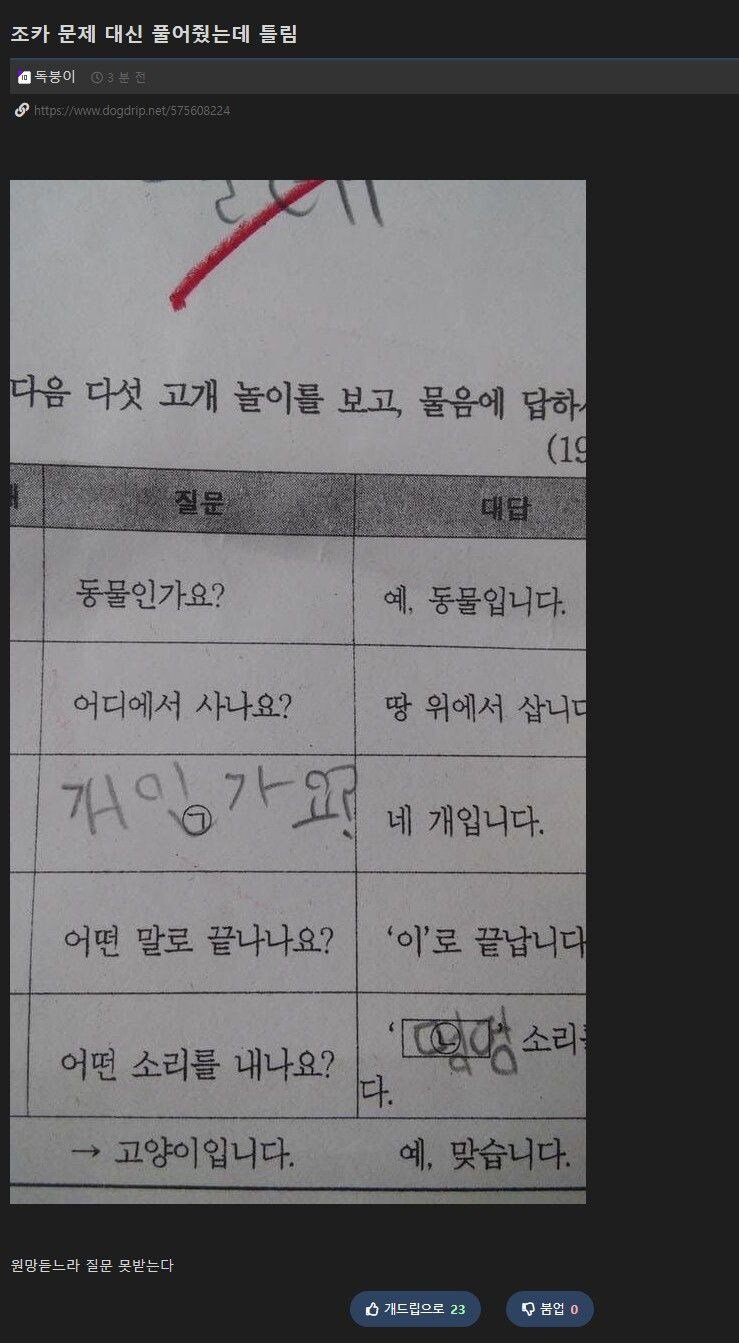 조카 문제 대신 풀어줬는데 틀림
독붕이 3 분 전
https://www.dogdrip.net/575608224
다음 다섯 고개 놀이를 보고, 물음에 답하
(19
질문 대답
동물인가요? 예, 동물입니다.
어디에서 사나요? 땅 위에서 삽니다
개인가요? ㉠ 네 개입니다.
어떤 말로 끝나나요? ‘이’로 끝납니다
어떤 소리를 내나요? ‘ ㉡ ’ 소리를
다.
→ 고양이입니다. 예, 맞습니다.
원망듣느라 질문 못받는다
개드립으로 23 붐업 0